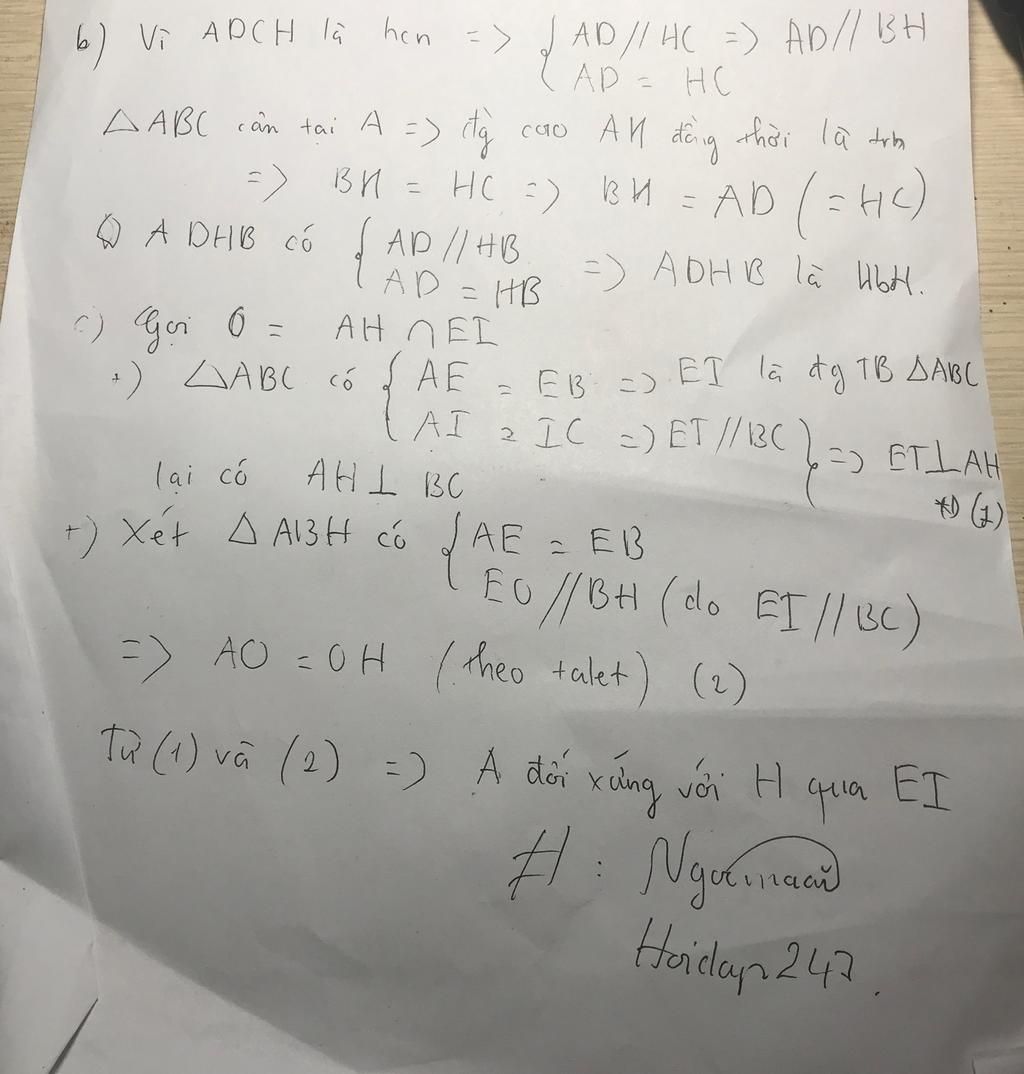 b) Vì ADCH là hcn => { AD // HC => AD // BH
AD = HC
△ABC cân tại A => đg cao AH đồng thời là trn
=> BH = HC => BH = AD (= HC)
◊ ADHB có { AD // HB
AD = HB => ADHB là HbH.
c) Gọi O = AH ∩ EI
+) △ABC có { AE = EB => EI là đg TB △ABC
AI = IC => EI // BC } => EI ⊥ AH
lại có AH ⊥ BC
(1)
+) Xét △ABH có { AE = EB
EO // BH (do EI // BC)
=> AO = OH (theo talet) (2)
Từ (1) và (2) => A đối xứng với H qua EI
Hoidap247.